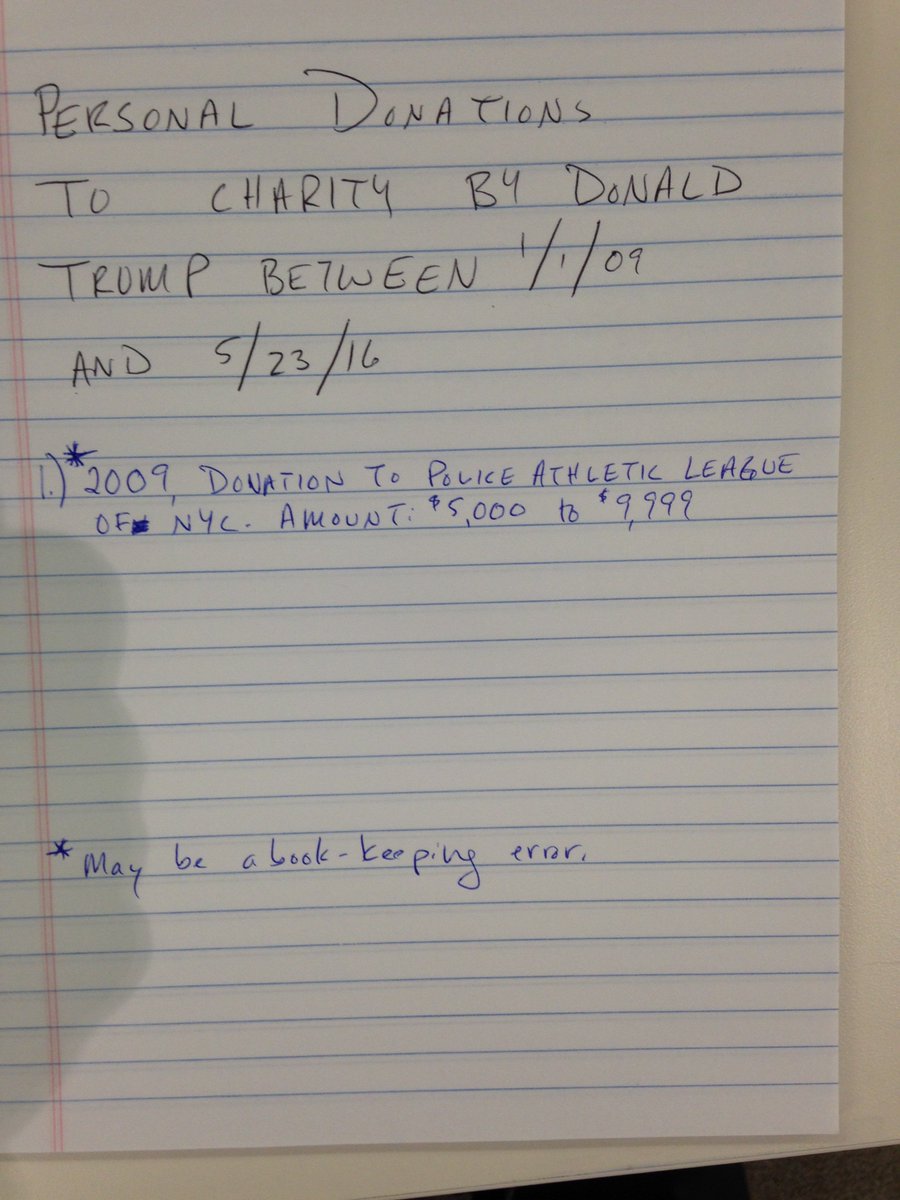 PERSONAL DONATIONS
TO CHARITY BY DONALD
TRUMP BETWEEN 1/1/09
AND 5/23/16
1.)* 2009, DONATION TO POLICE ATHLETIC LEAGUE
OF NYC. AMOUNT: $5,000 to $9,999
* May be a book-keeping error.